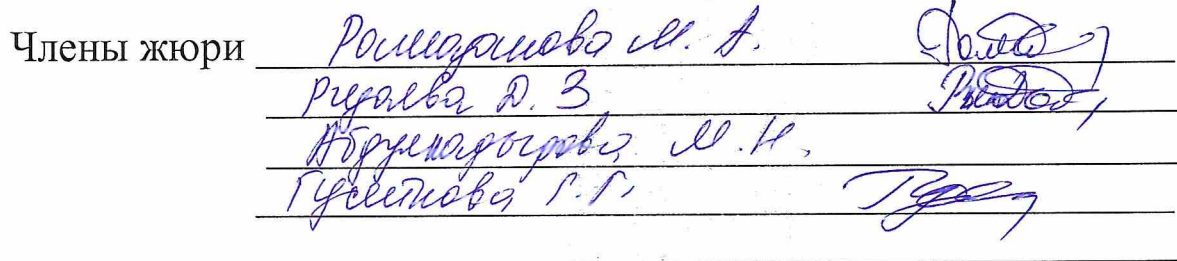 Члены жюри Рамазанова М. А.
Ризаева Д. З
Абдулкадырова М. Н.
Гусейнова Г. Г.